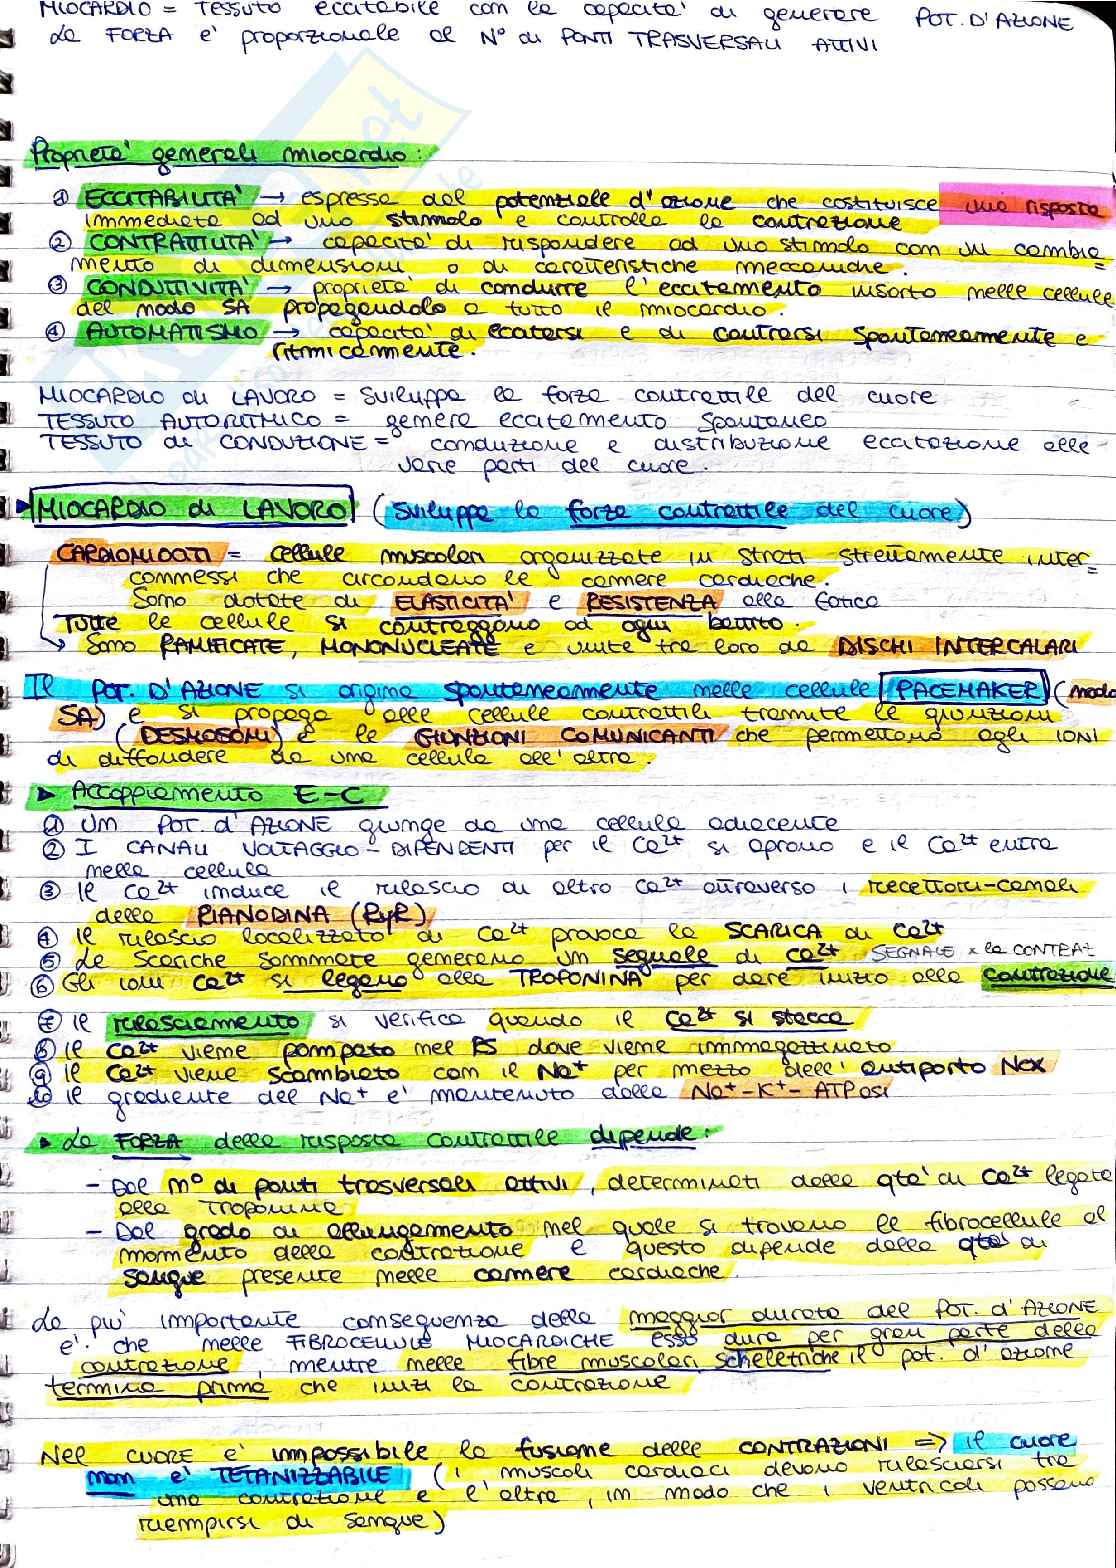 MIOCARDIO = TESSUTO eccitabile con la capacita' di generare POT. D'AZIONE
La FORZA e' proporzionale al N° di PONTI TRASVERSALI ATTIVI
Proprieta' generali miocardio:
① ECCITABILITA' → espressa dal potenziale d'azione che costituisce una risposta
immediata ad uno stimolo e controlla la contrazione
② CONTRATTILITA' → capacita' di rispondere ad uno stimolo con un cambia=
mento di dimensioni o di caratteristiche meccaniche.
③ CONDUTTIVITA' → proprieta' di condurre l'eccitamento insorto nelle cellule
del nodo SA propagandolo a tutto il miocardio.
④ AUTOMATISMO → capacita' di eccitarsi e di contrarsi spontaneamente e
ritmicamente.
MIOCARDIO di LAVORO = sviluppa la forza contrattile del cuore
TESSUTO AUTORITMICO = genera eccitamento spontaneo
TESSUTO di CONDUZIONE = conduzione e distribuzione eccitazione alle
varie parti del cuore.
▶ MIOCARDIO di LAVORO (sviluppa la forza contrattile del cuore)
CARDIOMIOCITI = cellule muscolari organizzate in strati strettamente inter=
connessi che circondano le camere cardiache.
Sono dotate di ELASTICITA' e RESISTENZA alla fatica
Tutte le cellule si contraggono ad ogni battito.
↳ Sono RAMIFICATE, MONONUCLEATE e unite tra loro da DISCHI INTERCALARI
Il POT. D'AZIONE si origina spontaneamente nelle cellule PACEMAKER (nodo
SA) e si propaga alle cellule contrattili tramite le giunzioni
(DESMOSOMI) e le GIUNZIONI COMUNICANTI che permettono agli IONI
di diffondere da una cellula all'altra.
▶ Accoppiamento E-C
① UN POT. d'AZIONE giunge da una cellula adiacente
② I CANALI VOLTAGGIO-DIPENDENTI per il Ca²⁺ si aprono e il Ca²⁺ entra
nella cellula
③ Il Ca²⁺ induce il rilascio di altro Ca²⁺ attraverso i recettori-canali
della RIANODINA (RyR)
④ Il rilascio localizzato di Ca²⁺ provoca la SCARICA di Ca²⁺
⑤ Le scariche sommate generano un segnale di Ca²⁺ SEGNALE x la CONTRAZ
⑥ Gli ioni Ca²⁺ si legano alla TROPONINA per dare inizio alla contrazione
⑦ Il rilasciamento si verifica quando il Ca²⁺ si stacca
⑧ Il Ca²⁺ viene pompato nel RS dove viene immagazzinato
⑨ Il Ca²⁺ viene scambiato con il Na⁺ per mezzo dell'antiporto Ncx
⑩ Il gradiente del Na⁺ e' mantenuto dalla Na⁺-K⁺-ATPasi
▶ La FORZA della risposta contrattile dipende:
- Dal n° di ponti trasversali attivi, determinati dalla qta' di Ca²⁺ legato
alla Troponina
- Dal grado di allungamento nel quale si trovano le fibrocellule al
momento della contrazione e questo dipende dalla qta' di
sangue presente nelle camere cardiache.
La piu' importante conseguenza della maggior durata del POT. d'AZIONE
e' che nelle FIBROCELLULE MIOCARDICHE esso dura per gran parte della
contrazione, mentre nelle fibre muscolari scheletriche il pot. d'azione
termina prima che inizi la contrazione
Nel CUORE e' impossibile la fusione delle CONTRAZIONI => il cuore
non e' TETANIZZABILE (i muscoli cardiaci devono rilasciarsi tra
una contrazione e l'altra, in modo che i ventricoli possano
riempirsi di sangue)